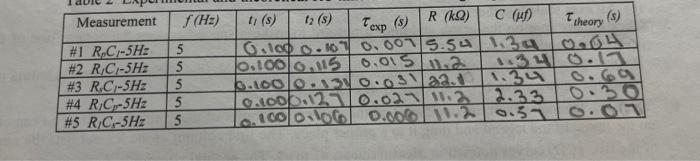 Measurement f (Hz) t₁ (s) t₂ (s) τexp (s) R (kΩ) C (μf) τtheory (s)
#1 RₚC₁-5Hz 5 0.100 0.107 0.007 5.54 1.34 0.04
#2 R₁C₁-5Hz 5 0.100 0.115 0.015 11.2 1.34 0.17
#3 RₛC₁-5Hz 5 0.100 0.131 0.031 22.1 1.34 0.69
#4 R₁Cₚ-5Hz 5 0.100 0.127 0.027 11.2 2.33 0.30
#5 R₁Cₛ-5Hz 5 0.100 0.106 0.006 11.2 0.57 0.07